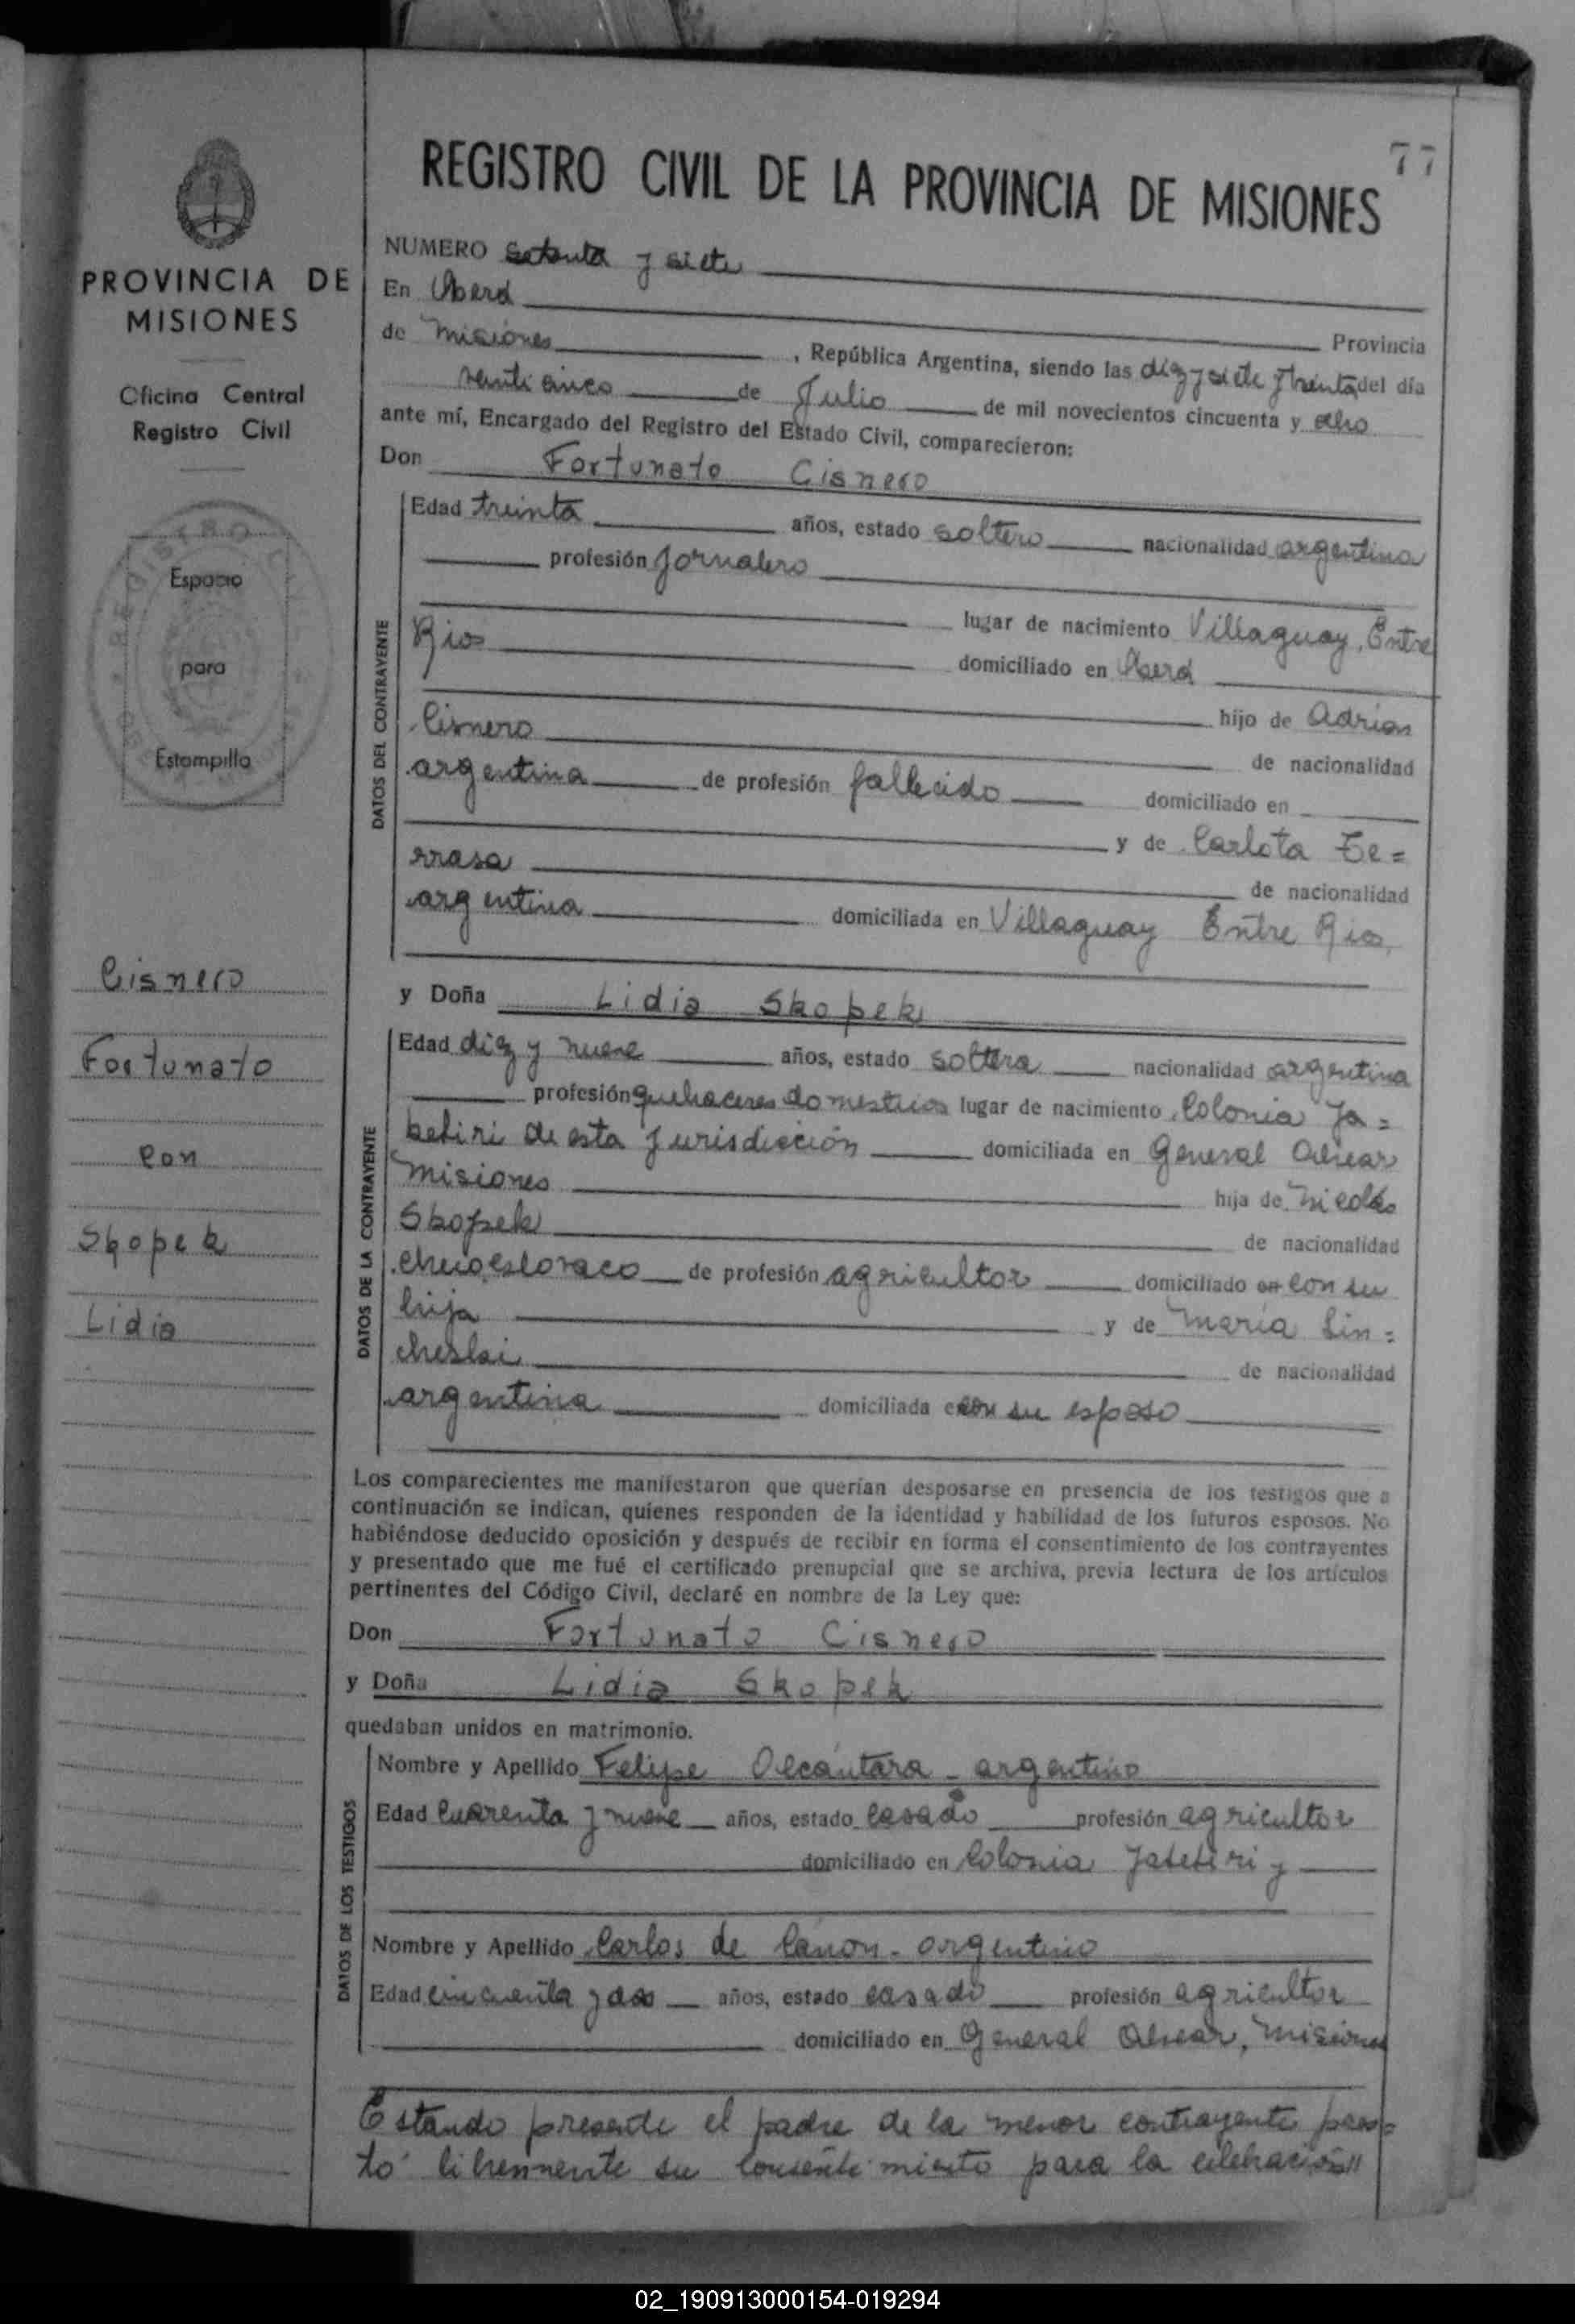 77
REGISTRO CIVIL DE LA PROVINCIA DE MISIONES
PROVINCIA DE
MISIONES
Oficina Central
Registro Civil
REGISTRO CIVIL
Espacio
para
Estampilla
Cisnero
Fortunato
con
Skopek
Lidia
NUMERO setenta y siete
En Oberá
Provincia
de Misiones, República Argentina, siendo las diez y siete y treinta del día
venti cinco de Julio de mil novecientos cincuenta y ocho
ante mí, Encargado del Registro del Estado Civil, comparecieron:
Don Fortunato Cisnero
DATOS DEL CONTRAYENTE
Edad treinta años, estado soltero nacionalidad argentina
profesión Jornalero
lugar de nacimiento Villaguay, Entre
Rios domiciliado en Oberá
hijo de Adrian
Cisnero de nacionalidad
argentina de profesión fallecido domiciliado en
y de Carlota Ze=
rrasa de nacionalidad
argentina domiciliada en Villaguay Entre Rios,
y Doña Lidia Skopek
DATOS DE LA CONTRAYENTE
Edad diez y nueve años, estado soltera nacionalidad argentina
profesión quehaceres domesticos lugar de nacimiento Colonia Ya=
betiri de esta Jurisdicción domiciliada en General Alvear
Misiones hija de Nicolás
Skopek de nacionalidad
checoeslovaco de profesión agricultor domiciliado en con su
hija y de María Lin=
cheski de nacionalidad
argentina domiciliada con su esposo
Los comparecientes me manifestaron que querían desposarse en presencia de los testigos que a
continuación se indican, quienes responden de la identidad y habilidad de los futuros esposos. No
habiéndose deducido oposición y después de recibir en forma el consentimiento de los contrayentes
y presentado que me fué el certificado prenupcial que se archiva, previa lectura de los artículos
pertinentes del Código Civil, declaré en nombre de la Ley que:
Don Fortunato Cisnero
y Doña Lidia Skopek
quedaban unidos en matrimonio.
DATOS DE LOS TESTIGOS
Nombre y Apellido Felipe Alcántara - argentino
Edad cuarenta y nueve años, estado casado profesión agricultor
domiciliado en Colonia Yabebiri y
Nombre y Apellido Carlos de Canon - argentino
Edad cincuenta y dos años, estado casado profesión agricultor
domiciliado en General Alvear, Misiones
Estando presente el padre de la menor contrayente pres=
tó libremente su consentimiento para la celebración"
02_190913000154-019294